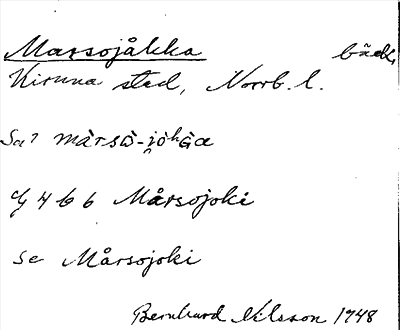 Marsojåkka bäck,
Kiruna stad, Norrb. l.
màrsò-jòhGa
4 6 6 Mårsojoki
se Mårsojoki
Bernhard Nilsson 1948